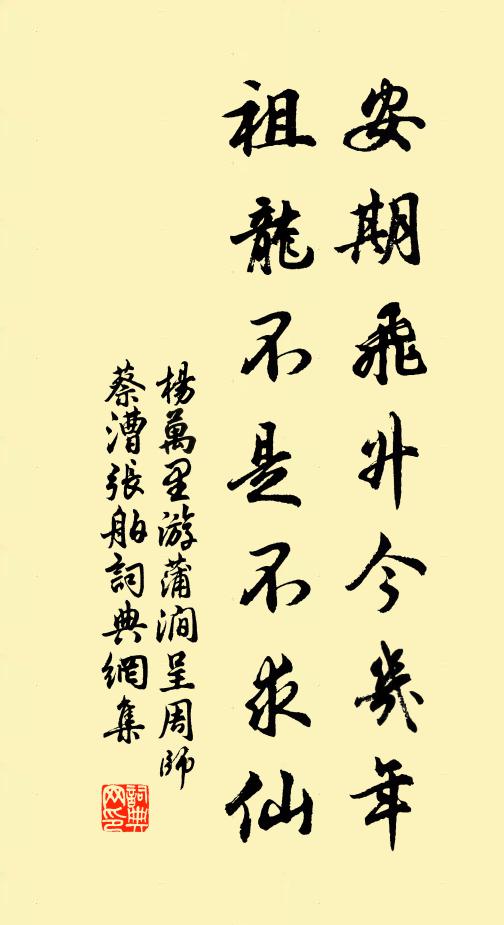 安期飛升今幾年
祖龍不是不求仙
楊萬里游蒲澗呈周師
蔡漕張舶詞典網集
詞典網印